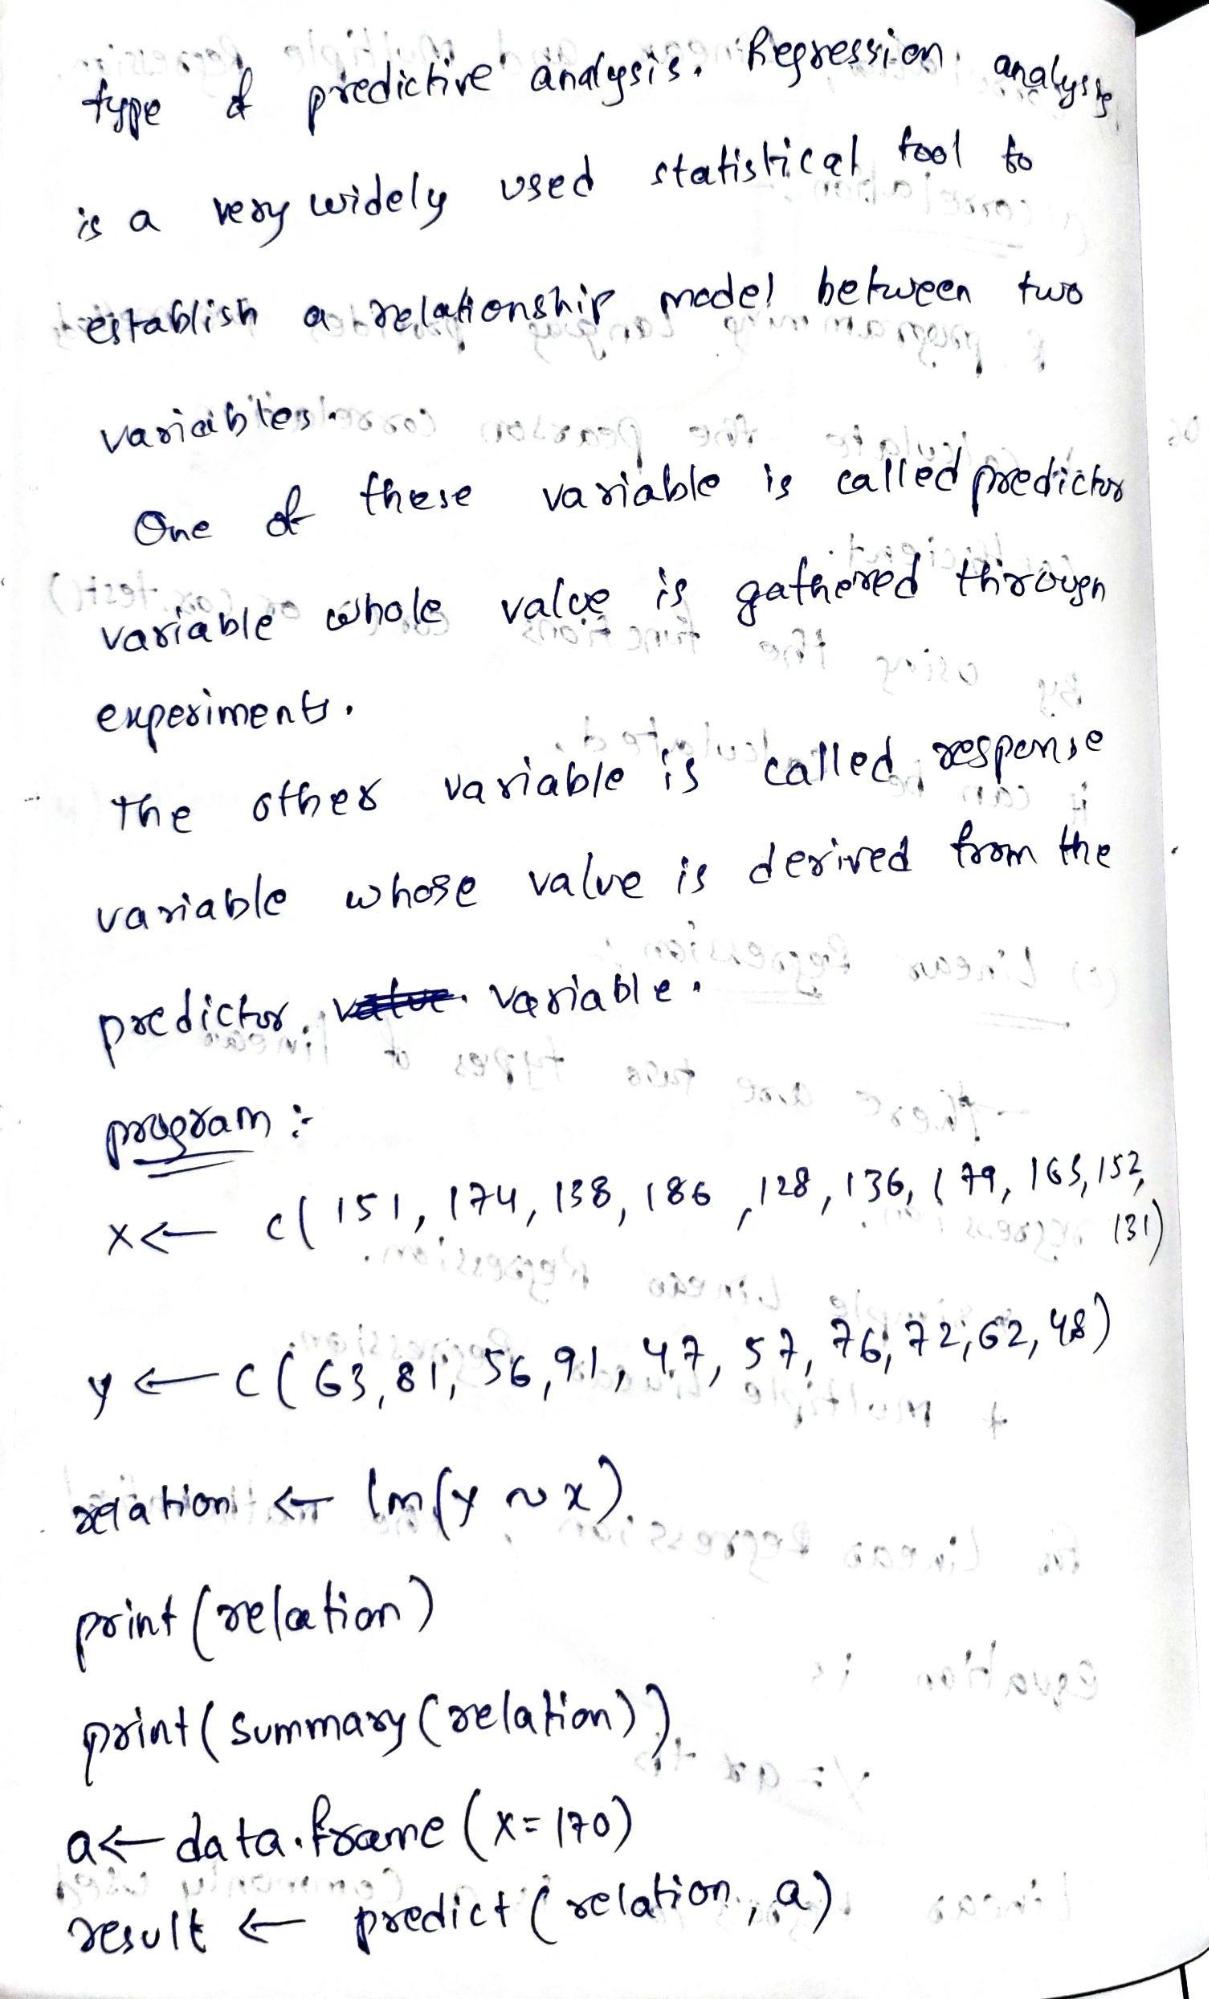 type of predictive analysis. Regression analysis
is a very widely used statistical tool to
establish a relationship model between two
variables.
One of these variable is called predictor
variable whole value is gathered through
experiments.
The other variable is called response
variable whose value is derived from the
predictor value variable.
program :-
x ← c( 151, 174, 138, 186, 128, 136, 179, 163, 152,
131)
y ← c( 63, 81, 56, 91, 47, 57, 76, 72, 62, 48)
relation ← lm(y ~ x)
print (relation)
print ( summary (relation))
a ← data.frame (x = 170)
result ← predict ( relation, a)